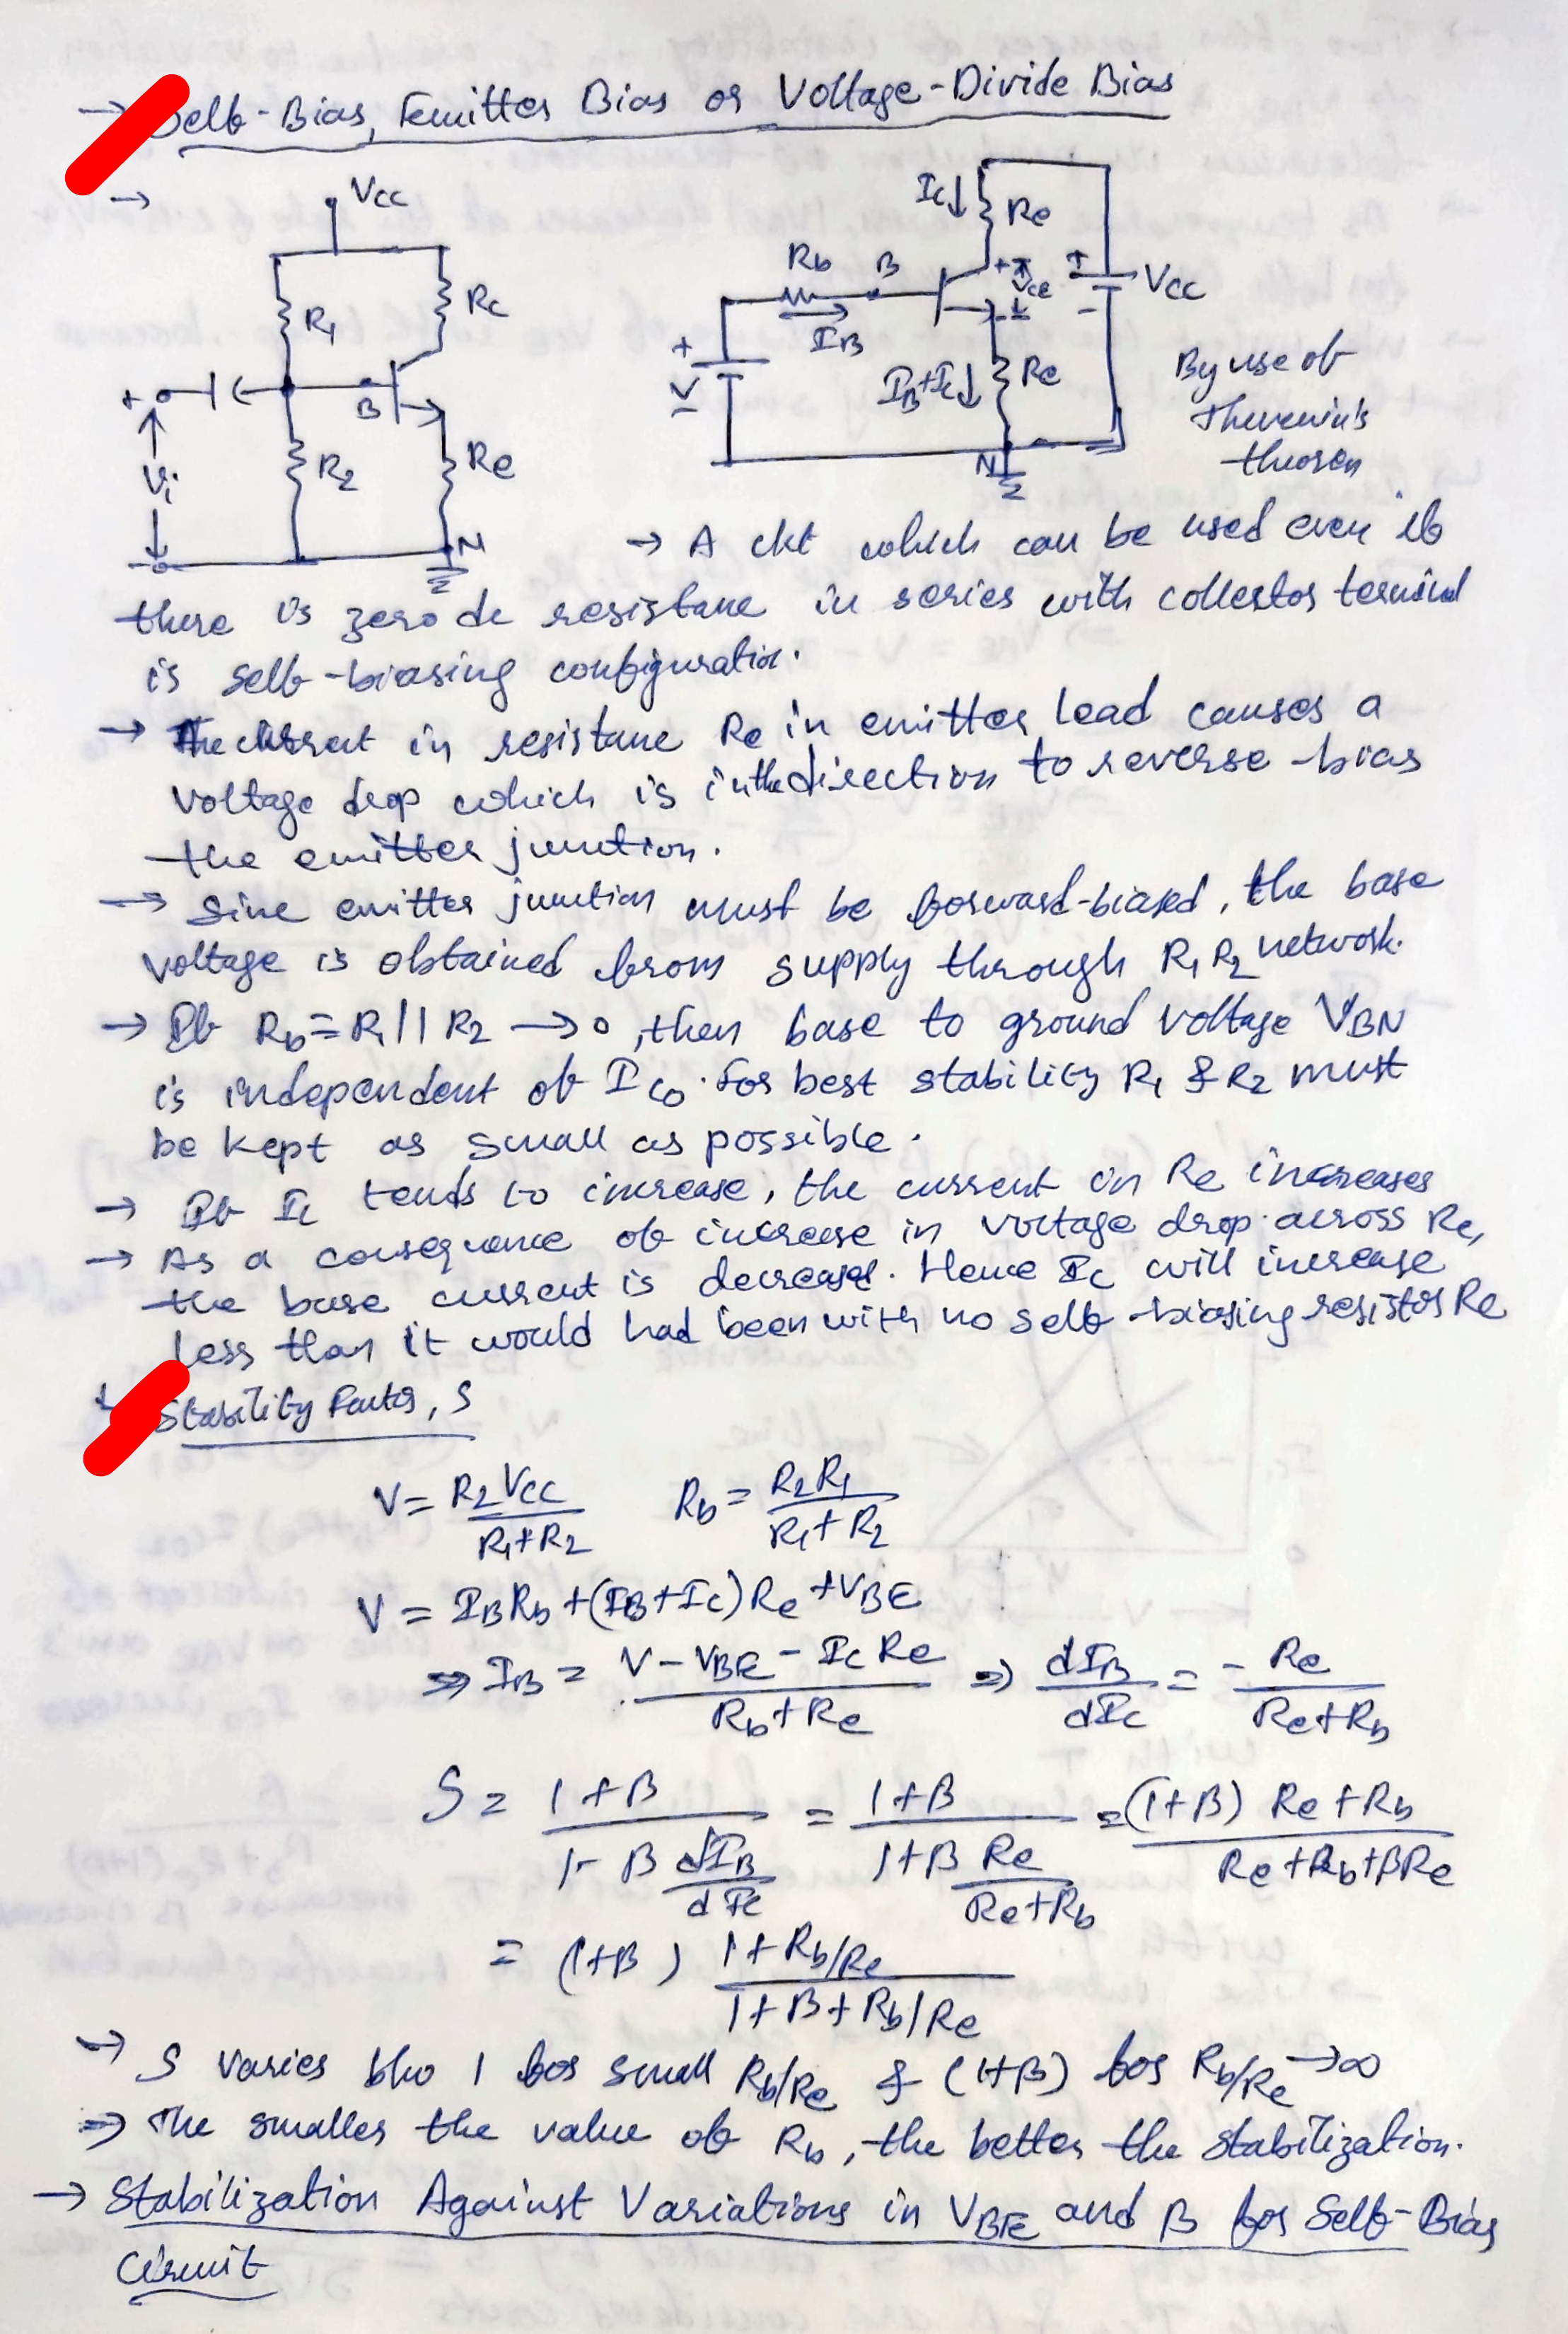 → Self-Bias, Emitter Bias or Voltage-Divide Bias
→
Vcc
R1
Rc
B
+
Vi
R2
Re
N
Ic↓
Re
Rb
B
IB
+
VCE
-
+
-
Vcc
+
V
-
IB+Ic↓
Re
N
By use of
Thevenin's
theorem
→ A ckt which can be used even if
there is zero dc resistance in series with collector terminal
is self-biasing configuration.
→ The current in resistance Re in emitter lead causes a
voltage drop which is in the direction to reverse-bias
the emitter junction.
→ Since emitter junction must be forward-biased, the base
voltage is obtained from supply through R1 R2 network.
→ If Rb = R1 || R2 → 0, then base to ground voltage VBN
is independent of ICO. For best stability R1 & R2 must
be kept as small as possible.
→ If Ic tends to increase, the current in Re increases
→ As a consequence of increase in voltage drop across Re,
the base current is decreased. Hence Ic will increase
less than it would had been with no self-biasing resistor Re
Stability Factor, S
V = R2 Vcc / R1+R2    Rb = R2 R1 / R1+R2
V = IB Rb + (IB+Ic) Re + VBE
⇒ IB = V - VBE - Ic Re / Rb+Re ⇒ dIB / dIc = - Re / Re+Rb
S = 1+β / 1 - β dIB/dIc = 1+β / 1+β Re/Re+Rb = (1+β) Re+Rb / Re+Rb+βRe
= (1+β) 1+Rb/Re / 1+β+Rb/Re
→ S varies b/w 1 for small Rb/Re & (1+β) for Rb/Re → ∞
⇒ The smaller the value of Rb, the better the stabilization.
→ Stabilization Against Variations in VBE and β for Self-Bias
Circuit